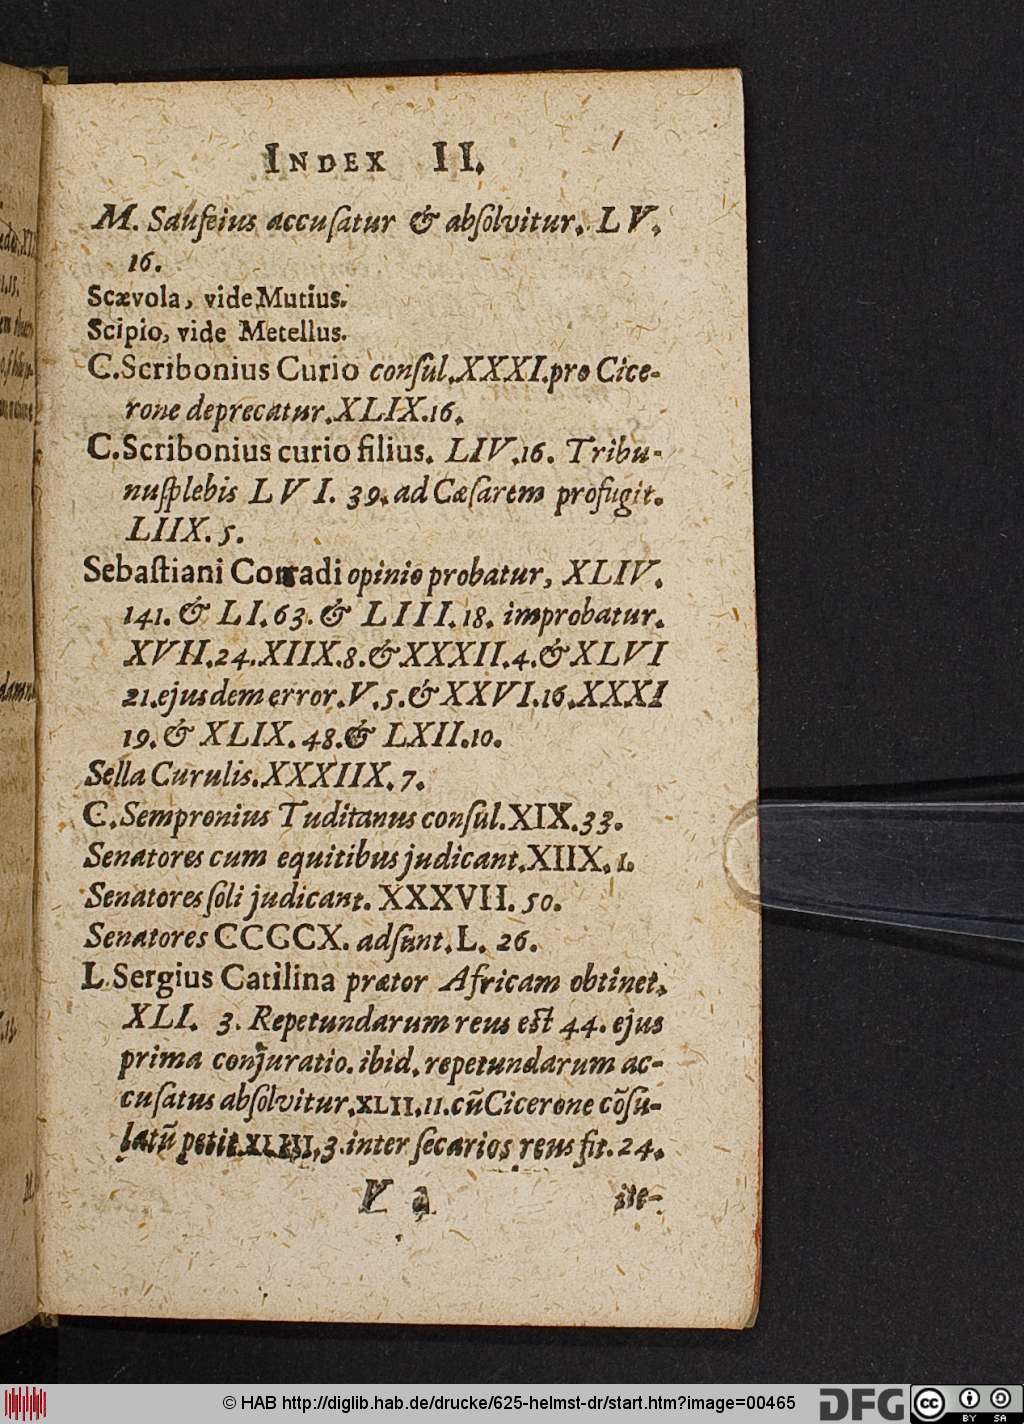 INDEX II.
M. Saufeius accusatur & absolvitur. LV.
16.
Scævola, vide Mutius.
Scipio, vide Metellus.
C. Scribonius Curio consul. XXXI. pro Cice-
rone deprecatur. XLIX. 16.
C. Scribonius curio filius. LIV. 16. Tribu-
nusplebis LVI. 39. ad Cæsarem profugit.
LIIX. 5.
Sebastiani Corradi opinio probatur, XLIV.
141. & LI. 63. & LIII. 18. improbatur.
XVII. 24. XIIX. 8. & XXXII. 4. & XLVI
21. ejusdem error. V. 5. & XXVI. 16. XXXI
19. & XLIX. 48. & LXII. 10.
Sella Curulis. XXXIIX. 7.
C. Sempronius Tuditanus consul. XIX. 33.
Senatores cum equitibus judicant. XIIX. 1.
Senatores soli judicant. XXXVII. 50.
Senatores CCCCX. adsunt. L. 26.
L. Sergius Catilina prætor Africam obtinet.
XLI. 3. Repetundarum reus est 44. ejus
prima conjuratio. ibid. repetundarum ac-
cusatus absolvitur. XLII. 11. cũ Cicerone cõsu-
latũ petit. XLIII. 3. inter secarios reus fit. 24.
V 2 ite-
© HAB http://diglib.hab.de/drucke/625-helmst-dr/start.htm?image=00465
DFG
cc BY SA